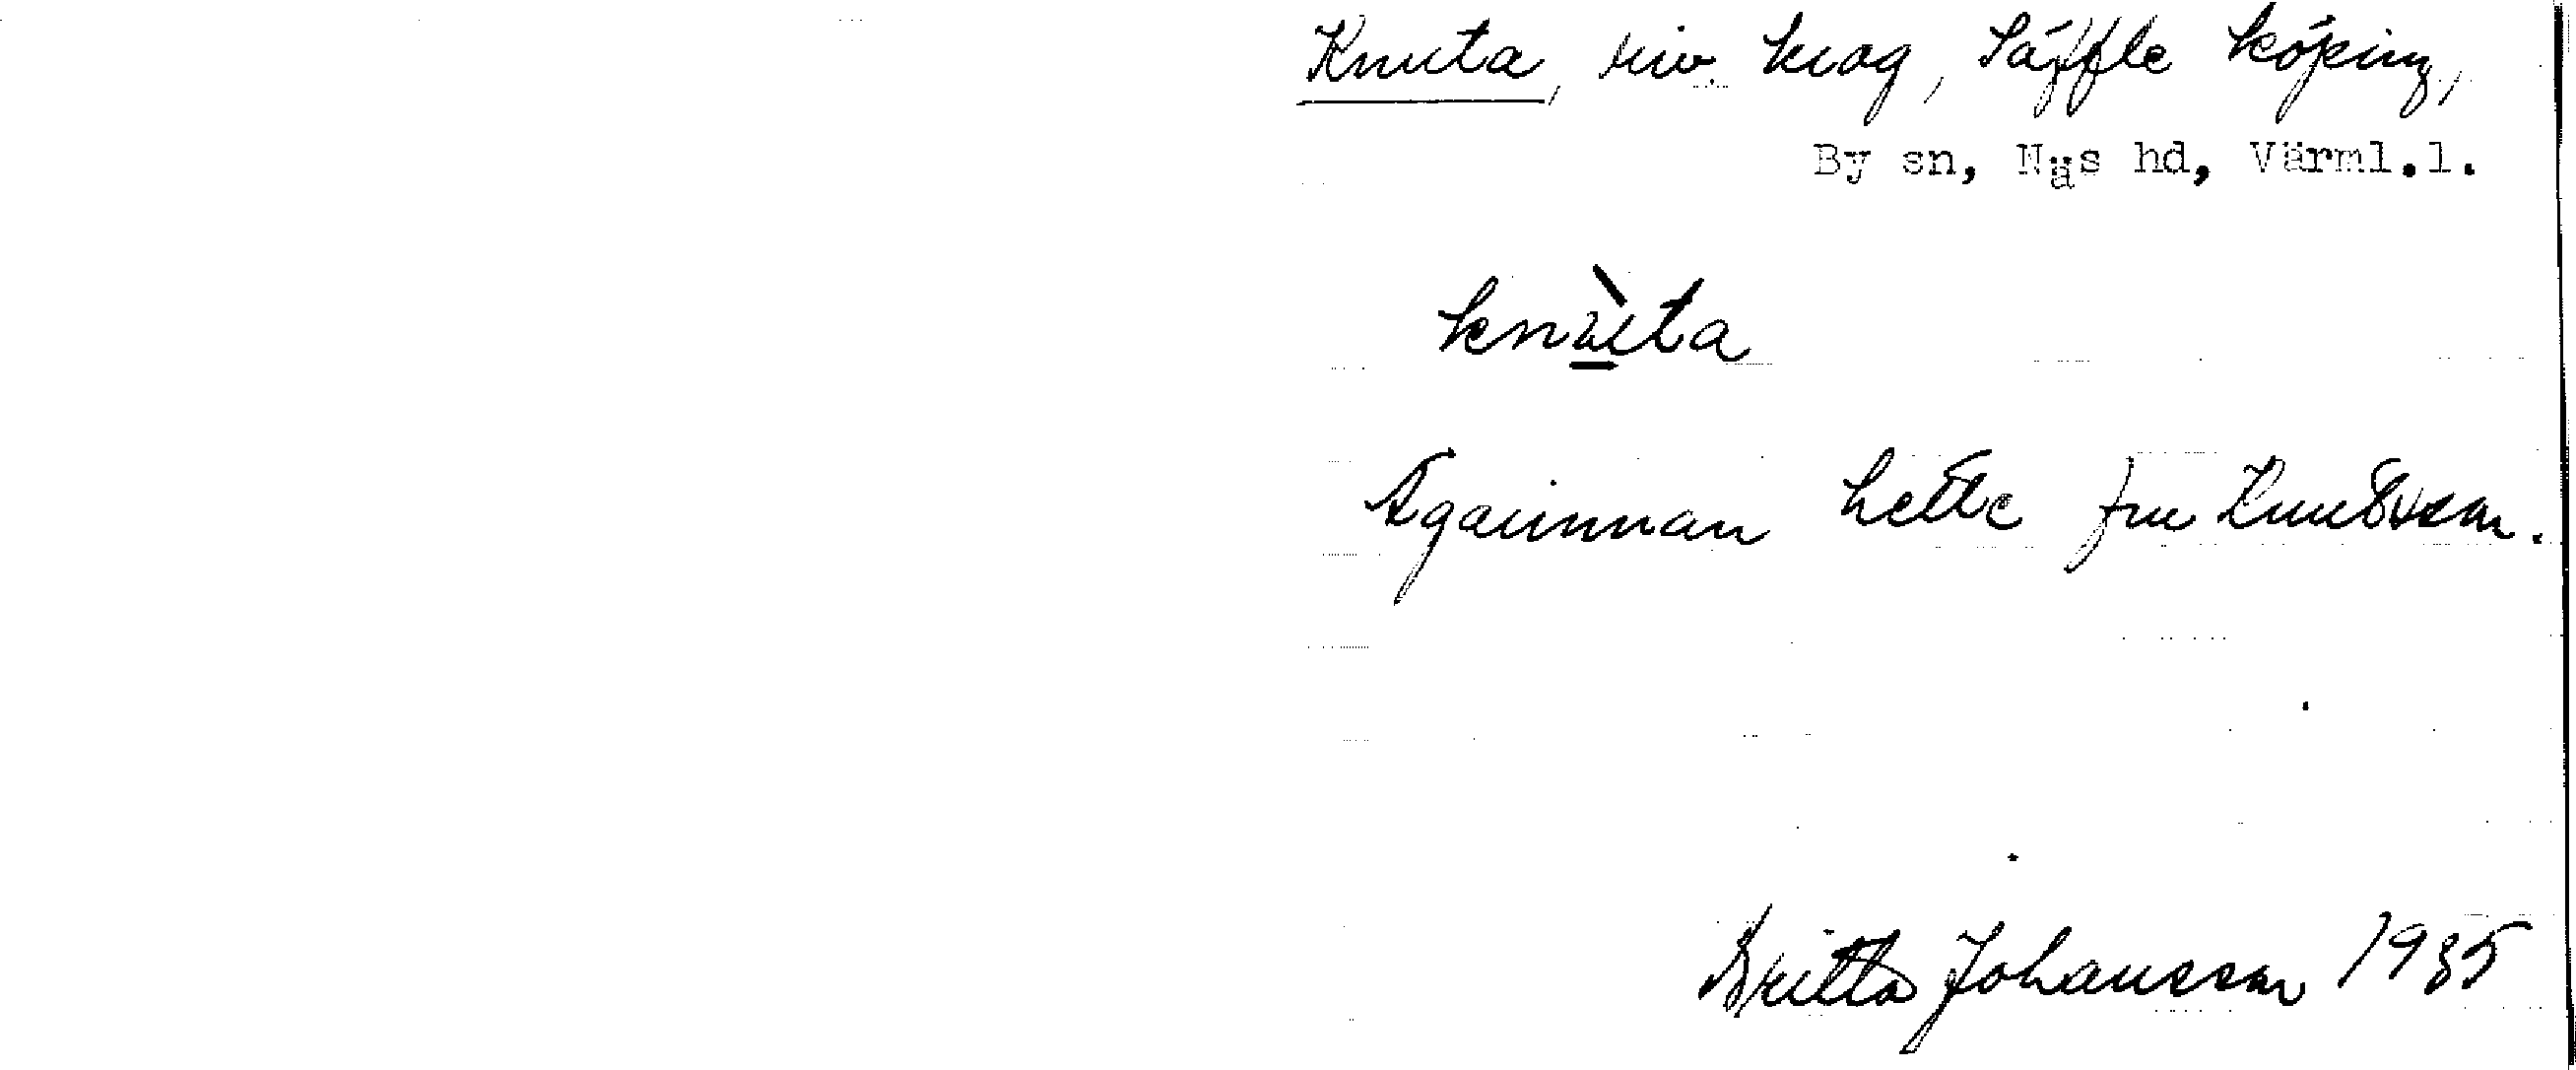 Knuta, riv. krog, Säffle köping,
By sn, Näs hd, Värml.l.
knùta
Ägarinnan hette fru Knutsson.
Britta Johansson 1935